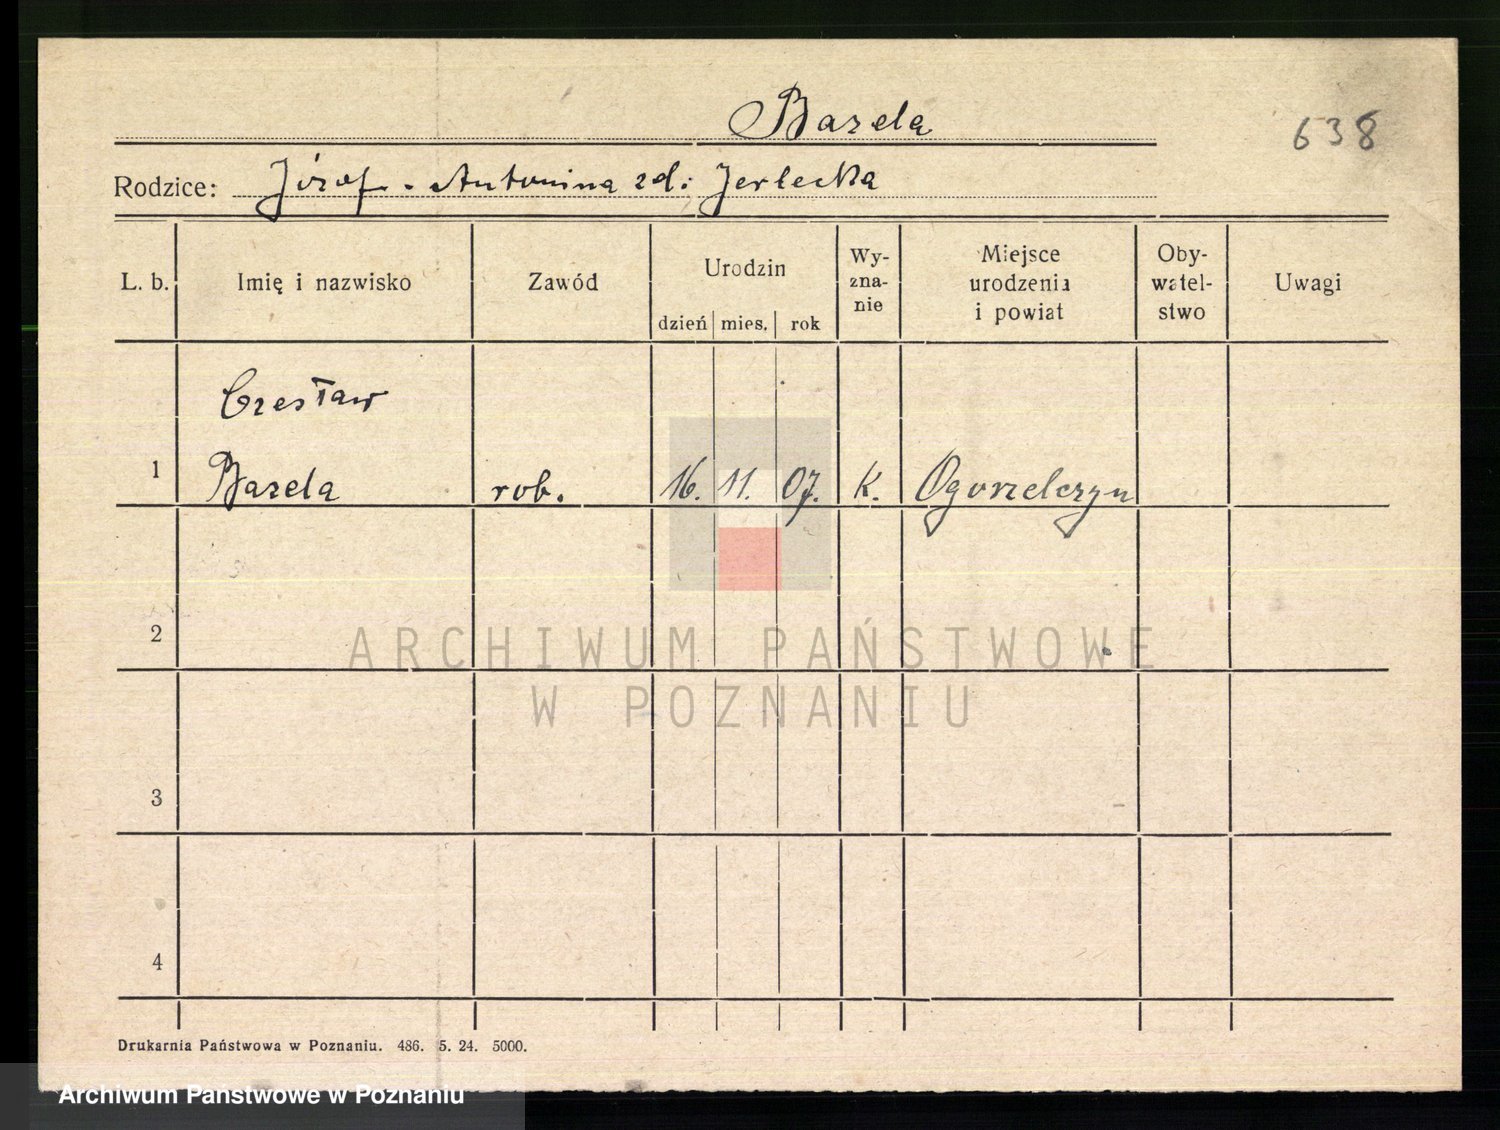 Bazela
638
Rodzice: Józef - Antonina zd: Jerlecka
L. b.
Imię i nazwisko
Zawód
Urodzin
dzień mies. rok
Wy-
zna-
nie
Miejsce
urodzenia
i powiat
Oby-
watel-
stwo
Uwagi
Czesław
1 Bazela rob. 16. 11. 07. K. Ogorzelczyn
2
ARCHIWUM PAŃSTWOWE
W POZNANIU
3
4
Drukarnia Państwowa w Poznaniu. 486. 5. 24. 5000.
Archiwum Państwowe w Poznaniu